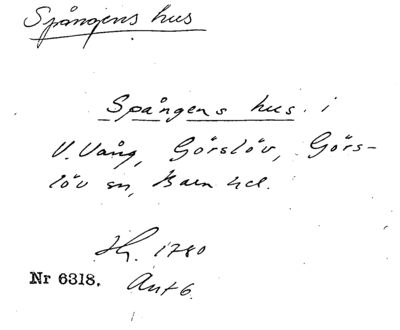 Spångens hus
Spångens hus i
V. Vång, Görslöv, Görs-
löv sn, Bara hd.
1780
Nr 6318. Ant 6.